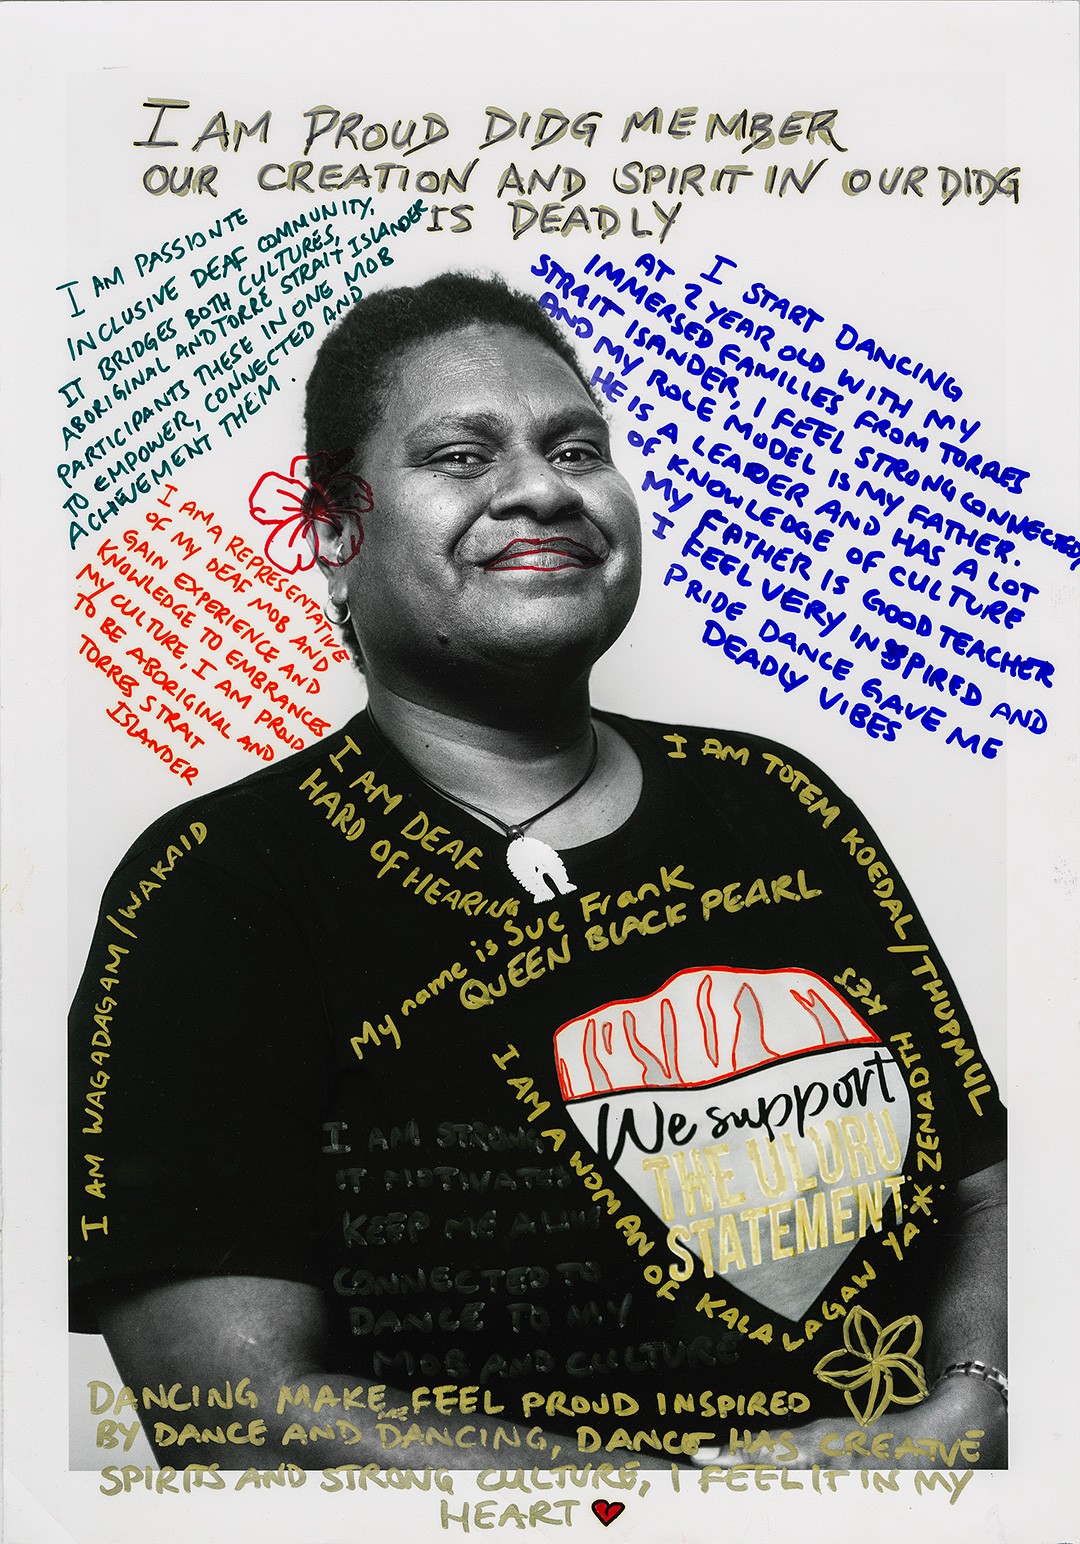 I AM PROUD DIDG MEMBER
OUR CREATION AND SPIRIT IN OUR DIDG
IS DEADLY
I AM PASSIONTE
INCLUSIVE DEAF COMMUNITY,
IT BRIDGES BOTH CULTURES,
ABORIGINAL AND TORRE STRAIT ISLANDER
PARTICIPANTS THESE IN ONE MOB
TO EMPOWER, CONNECTED AND
ACHIEVEMENT THEM.
I START DANCING
AT 2 YEAR OLD WITH MY
IMMERSED FAMILLES FROM TORRES
STRAIT ISANDER, I FEEL STRONG CONNECTED,
AND MY ROLE MODEL IS MY FATHER.
HE IS A LEADER AND HAS A LOT
OF KNOWLEDGE OF CULTURE
MY FATHER IS GOOD TEACHER
I FEEL VERY INSPIRED AND
PRIDE DANCE GAVE ME
DEADLY VIBES
I AM A REPRESENTATIVE
OF MY DEAF MOB AND
GAIN EXPERIENCE AND
KNOWLEDGE TO EMBRANCES
MY CULTURE, I AM PROUD
TO BE ABORIGINAL AND
TORRES STRAIT
ISLANDER
I AM DEAF
HARD OF HEARING
I AM TOTEM KOEDAL/THUPMUL
I AM WAGADAGAM/WAKAID
My name is Sue Frank
QUEEN BLACK PEARL
I AM A WOMAN OF KALA LAGAW YA * ZENADTH KES
We support
THE ULURU
STATEMENT
I AM STRONG
IT MOTIVATES
KEEP ME ALIVE
CONNECTED TO
DANCE TO MY
MOB AND CULTURE
DANCING MAKE ME FEEL PROUD INSPIRED
BY DANCE AND DANCING, DANCE HAS CREATIVE
SPIRITS AND STRONG CULTURE, I FEEL IT IN MY
HEART